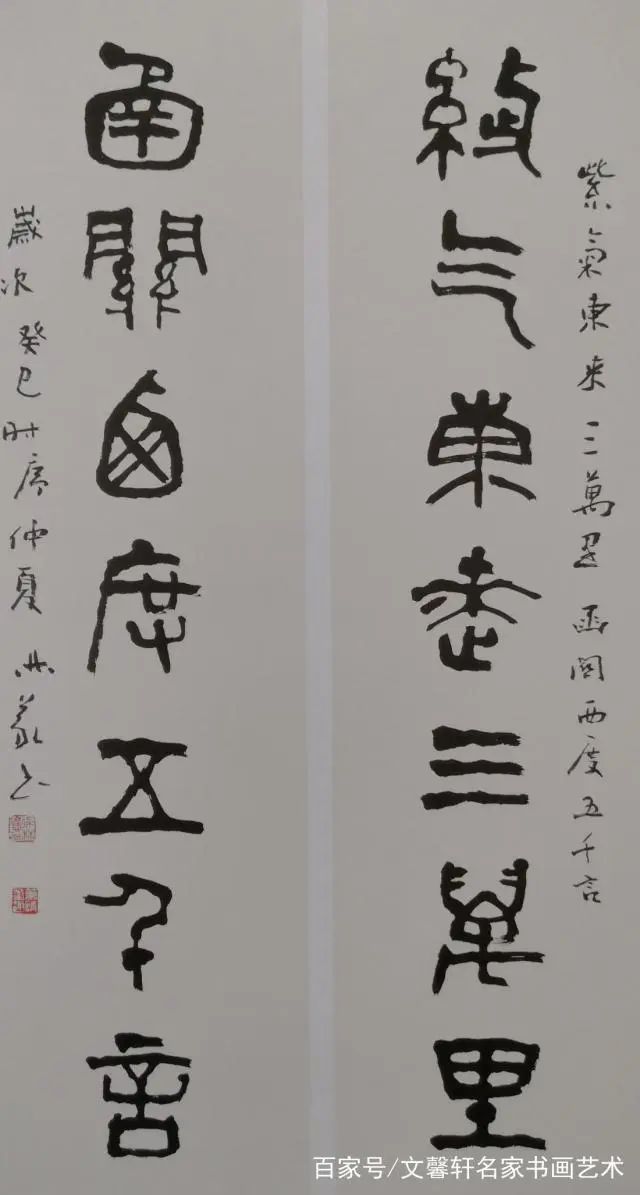 紫气東来三萬里
紫氣東来三萬里 函関西度五千言
函關西度五千言
歲次癸巳时序仲夏
百家号/文馨轩名家书画艺术